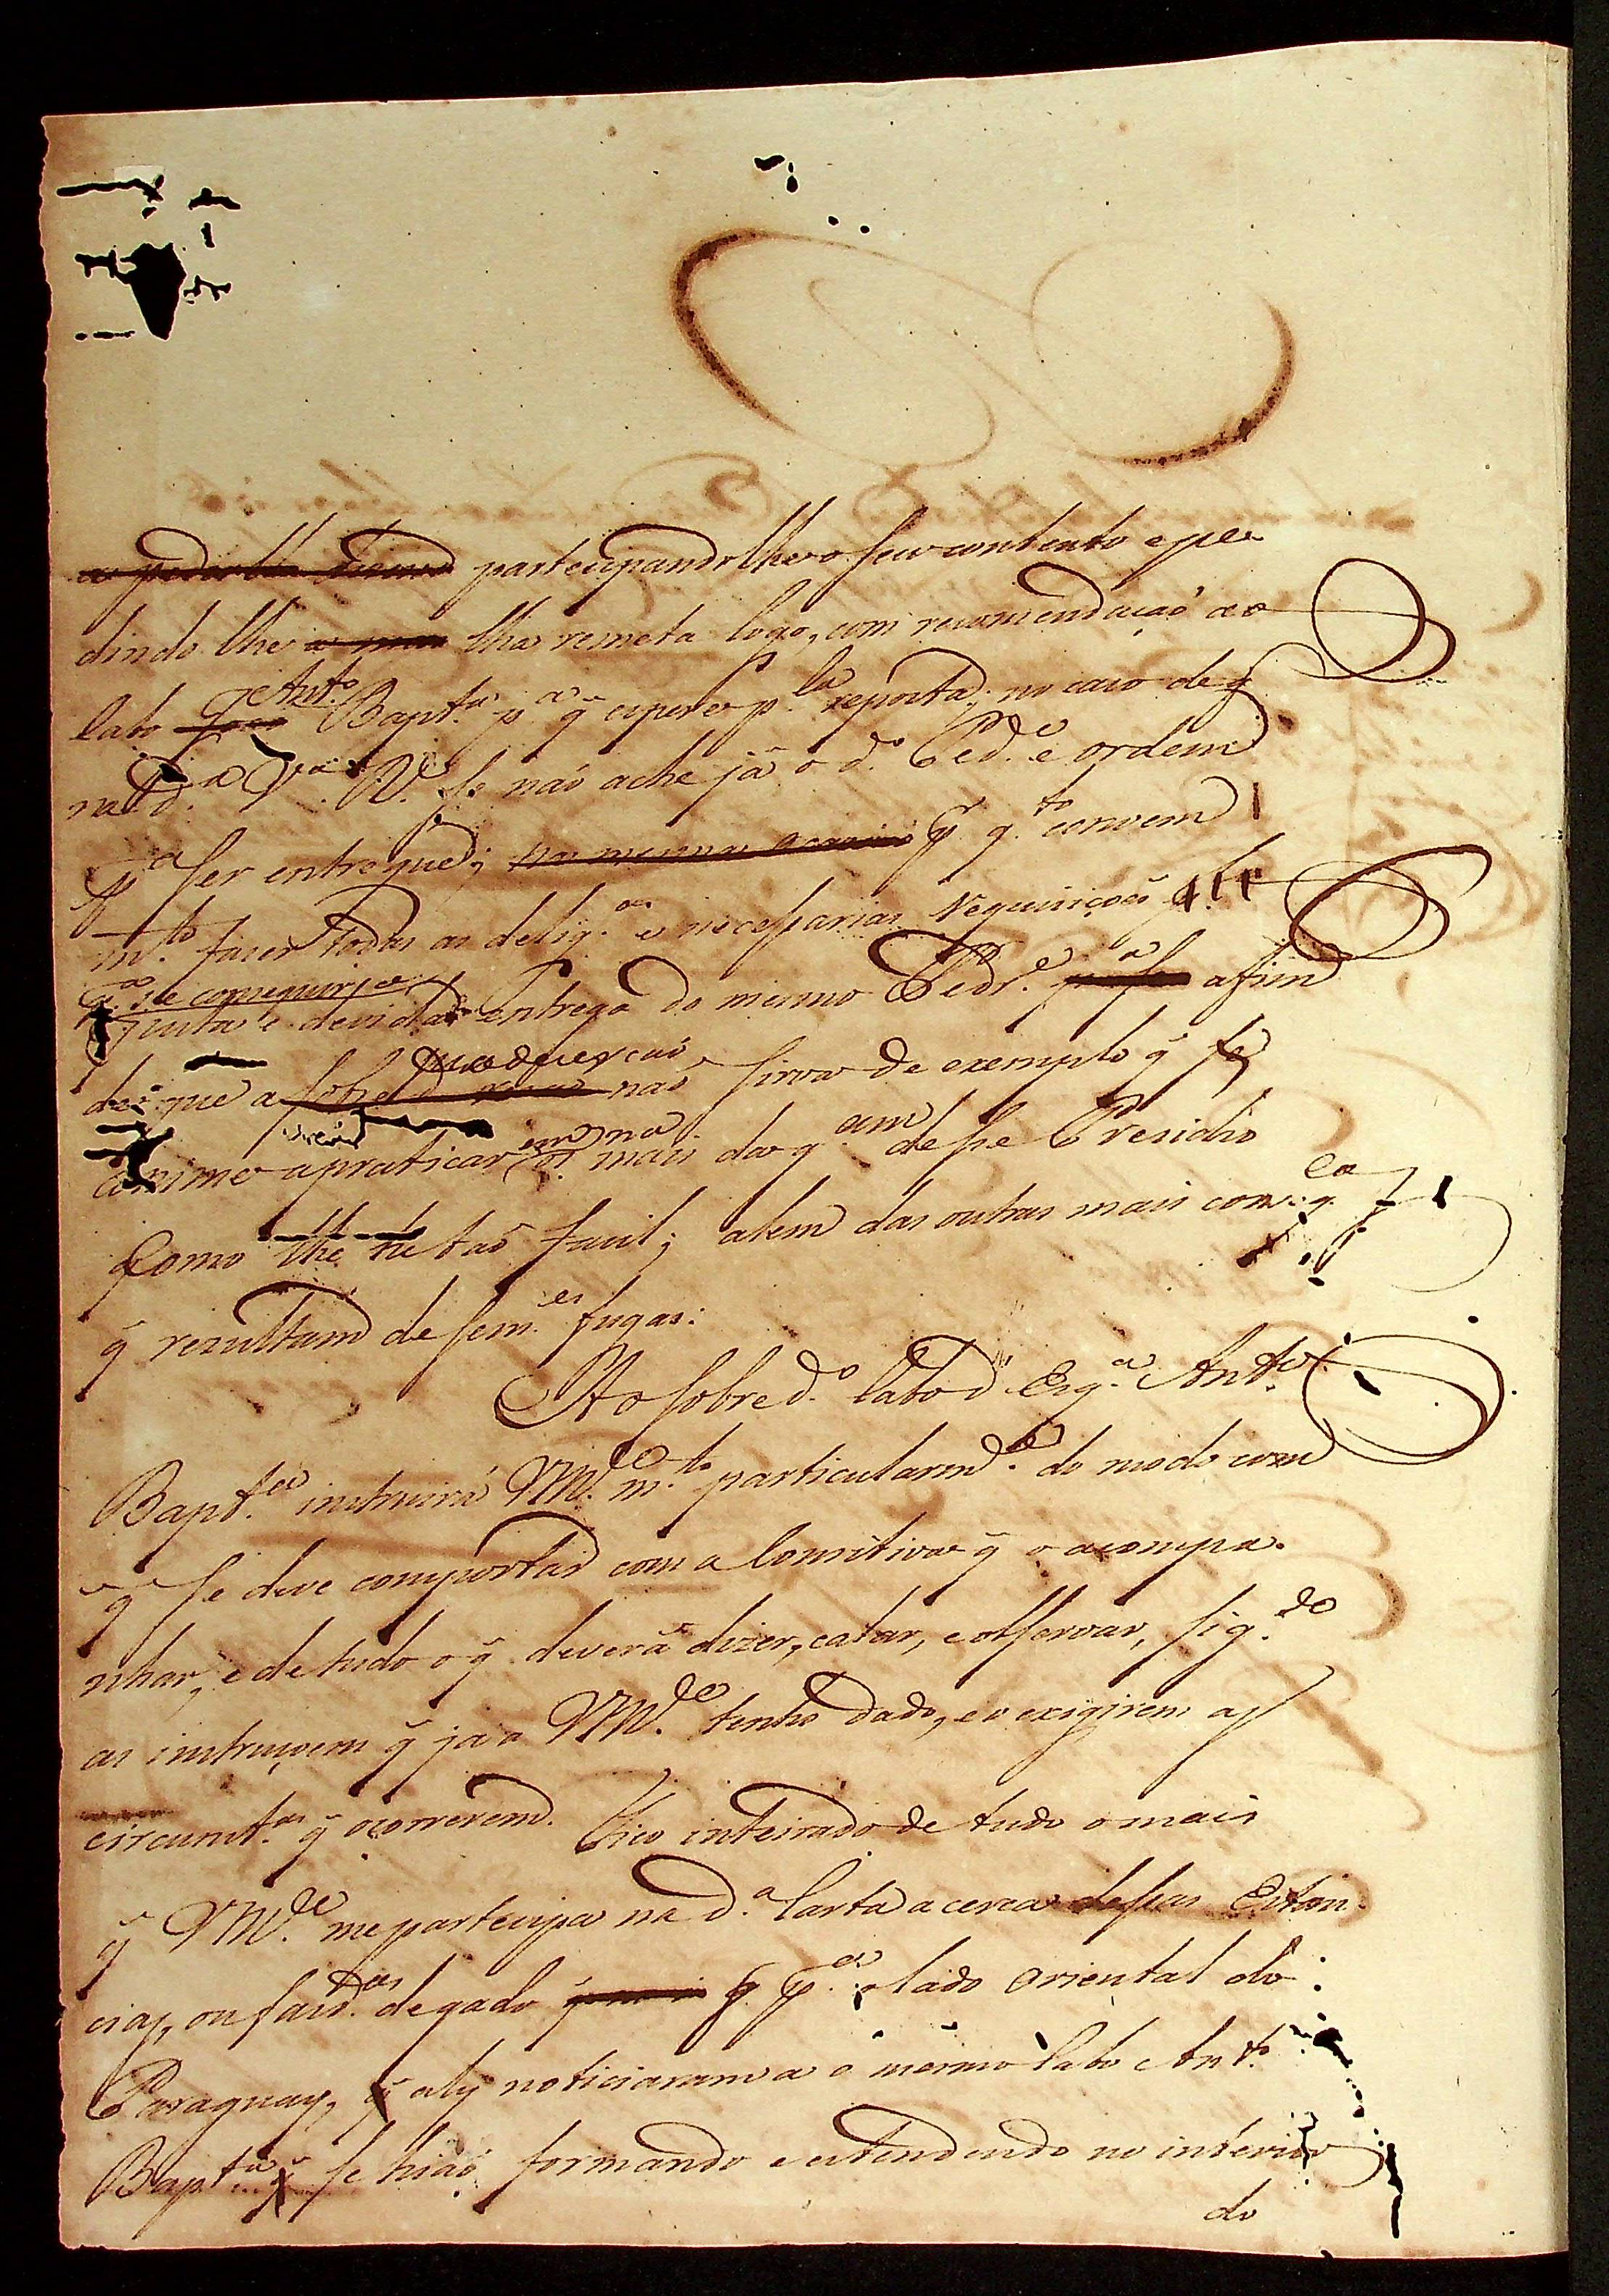 participandolhe o seu contento e pe-
dindo lhe lha remeta logo, com recomendaçaõ ao
Cabo Ant.º Bapt.ª p.ª q̃ espere p.la reposta, no caso de q̃
na d.ª V.ª R. se naõ ache já o d.º Pedr.e e ordem
p.ª ser entregue; p q.to convem
m.to fazer todas as delig.as e necessarias requisiçoẽs
p.ª se conseguir a
justa e devida entrega do mesmo Pedr.e afim
de que a naõ sirva de exemplo q̃ se
animem a praticar os mais da q̃ desse Presidio
como lhe he taõ facil; alem das outras mais conseq.as
q̃ rezultam de sem.es fugas.
Ao sobred.º Cabo d'Esq.ª Ant.º
Bapt.ª instruirá VM.ce m.to particularm.te do modo com
q̃ se deve comportar com a Comitiva q̃ o acompa-
nhar, e de tudo o q̃ deverá dizer, calar, e observar, sig.do
as instruçoens q̃ ja a VM.ce tenho dado, e o exigirem as
circumst.as q̃ ocorrerem. Fico inteirado de tudo o mais
q̃ VM.ce me participa na d.ª Carta acerca dessas Estan-
cias, ou faz.das de gado p.ª o lado oriental do
Paraguay, q̃ aly noticiaram a o mesmo Cabo Ant.º
Bapt.ª q̃ se hiaõ formando e estendendo no interior
do